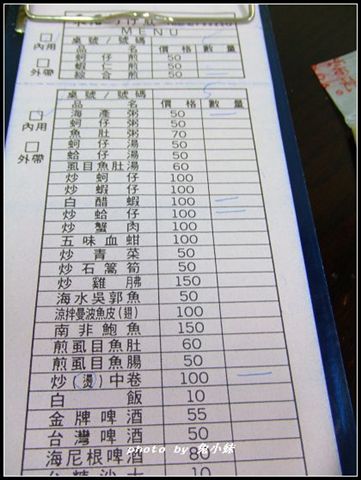 MENU
桌號/號碼
內用
外帶
品 名 價格 數量
蚵仔煎 50
蝦仁煎 50
綜合煎 50
桌號/號碼
內用
外帶
品 名 價格 數量
海產粥 50
蚵仔粥 50
魚肚粥 70
蚵仔湯 50
蛤仔湯 50
虱目魚肚湯 60
炒蚵仔 100
炒蝦仔 100
白醋蝦 100
炒蛤仔 100
炒蟹肉 100
五味血蚶 100
炒青菜 50
炒石篙筍 50
炒雞胇 150
海水吳郭魚 50
涼拌曼波魚皮(翅) 100
南非鮑魚 150
煎虱目魚肚 60
煎虱目魚腸 50
炒(燙)中卷 100
白飯 10
金牌啤酒 55
台灣啤酒 50
海尼根啤酒 80
photo by 兔小妹